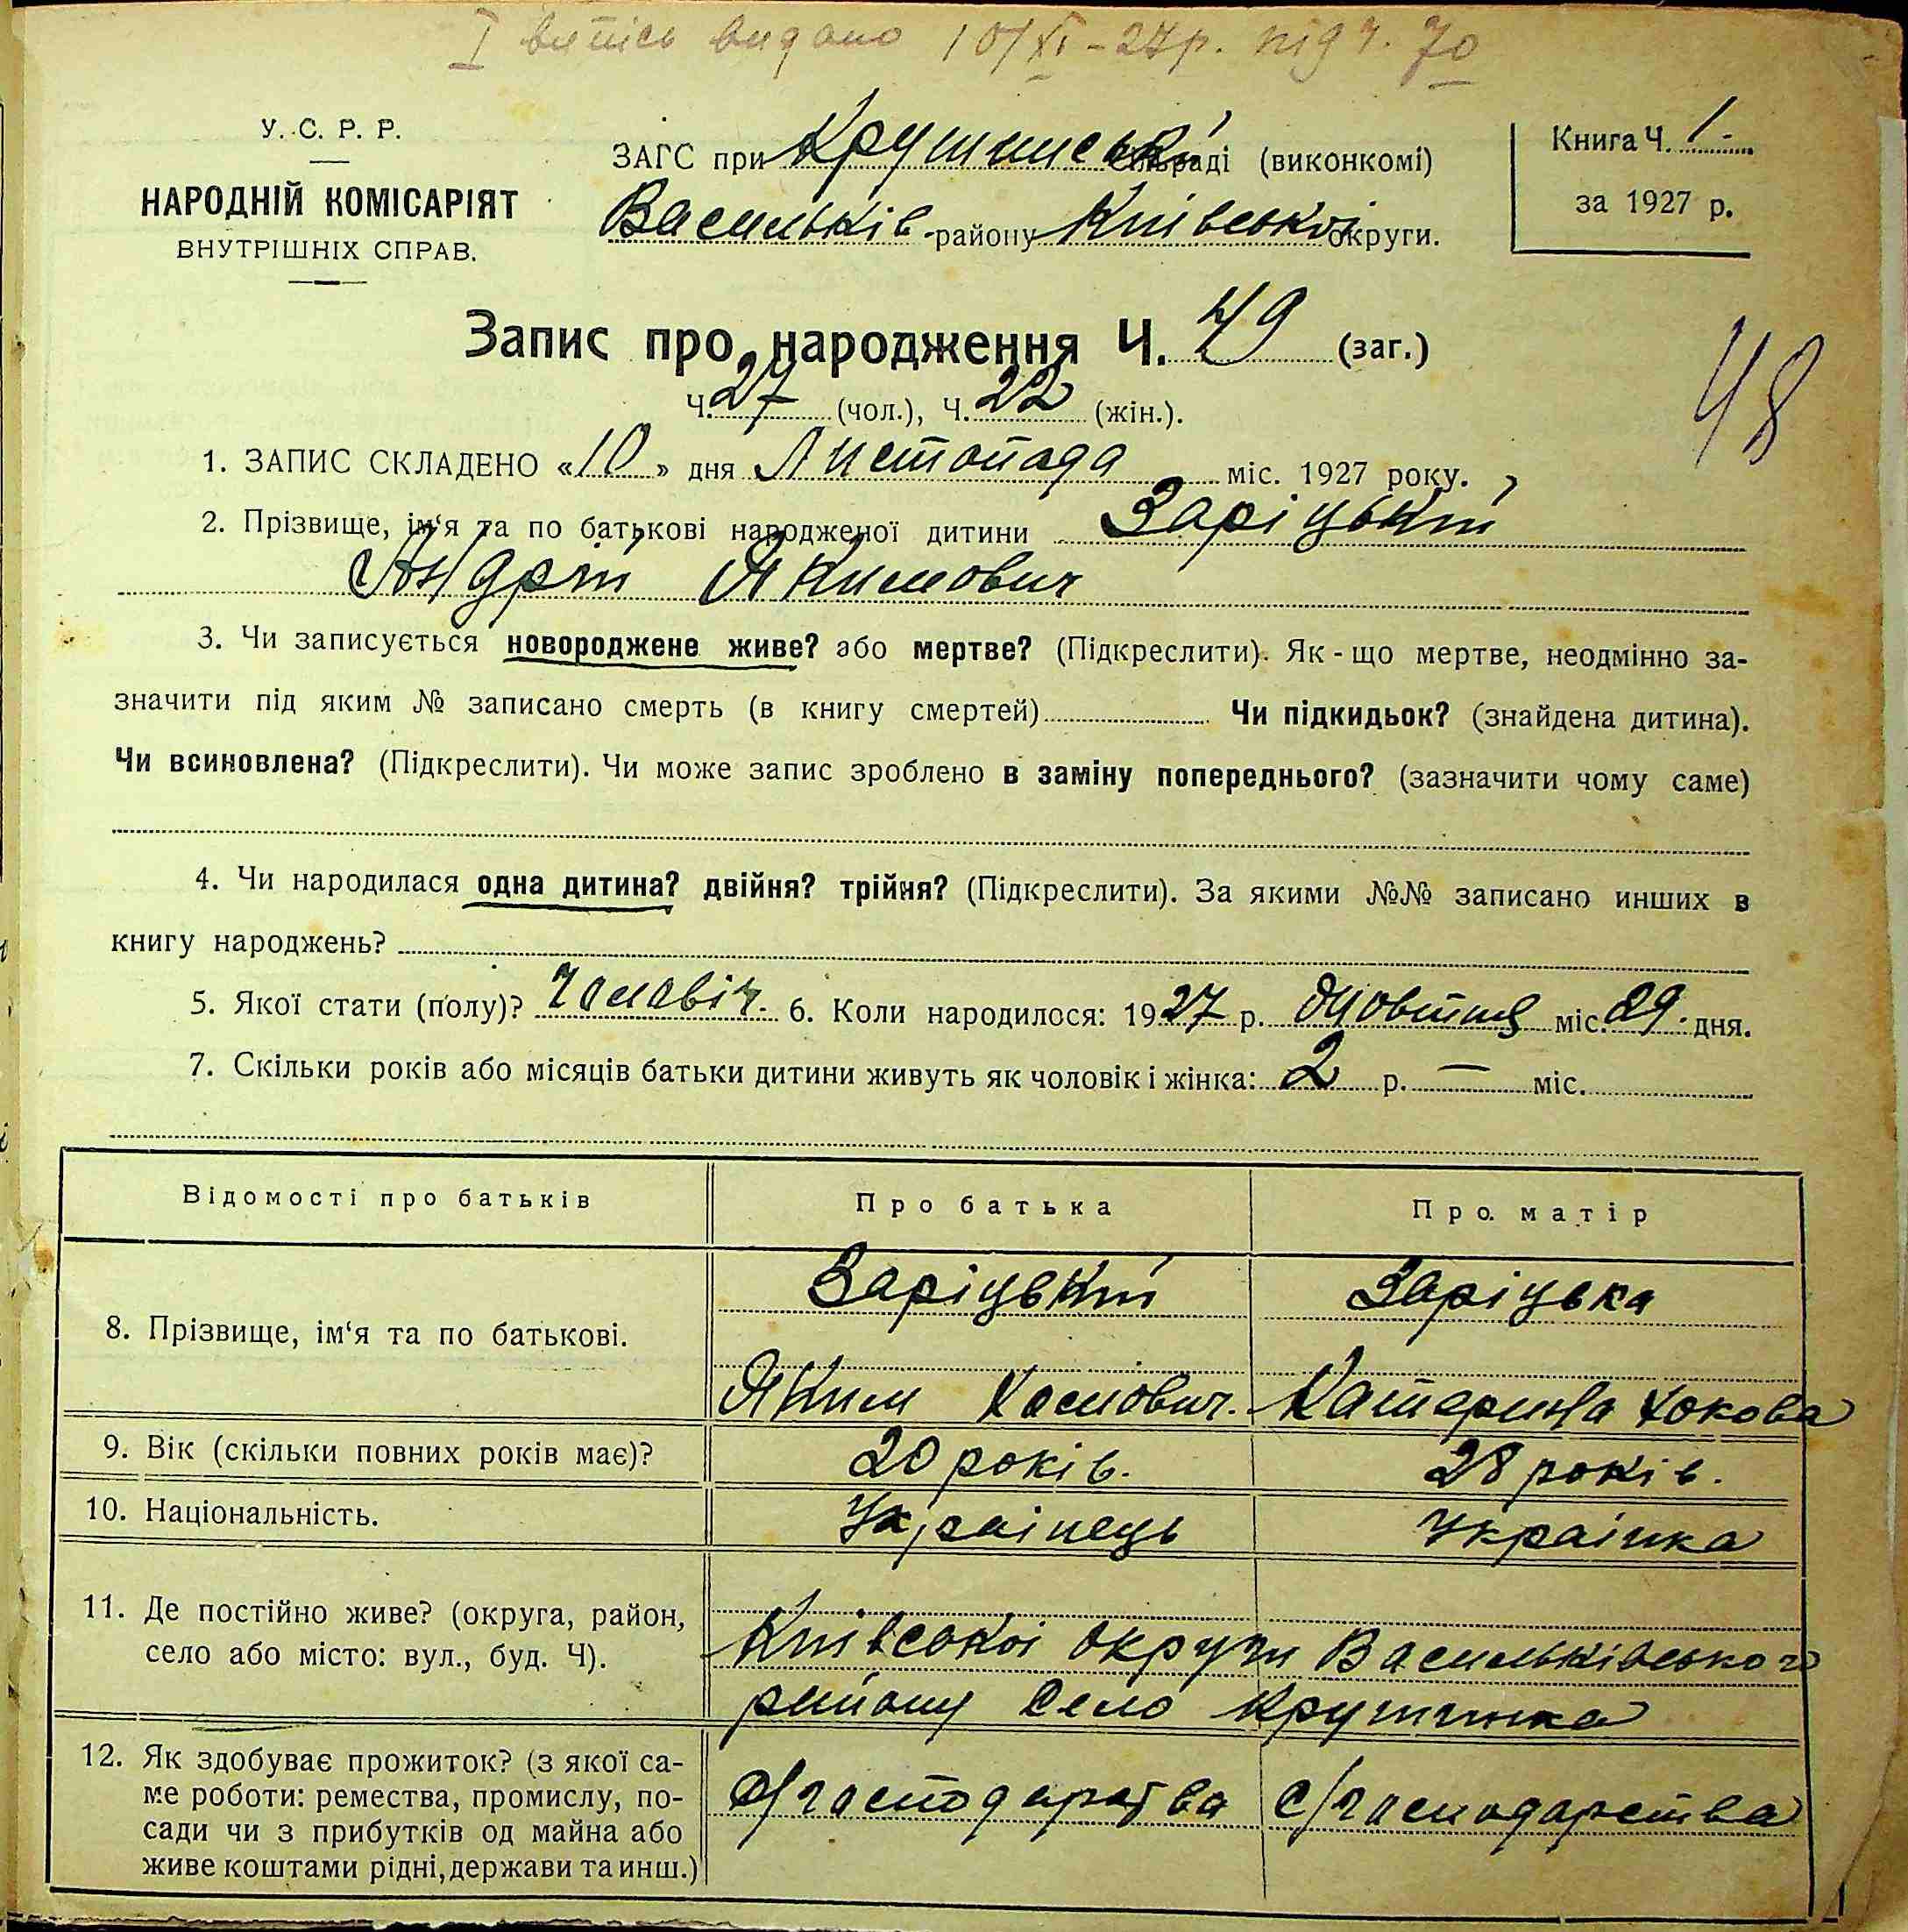 І витпісь видано 10/XI-27р. під ч. 70
У. С. Р. Р.
НАРОДНІЙ КОМІСАРІЯТ
ВНУТРІШНІХ СПРАВ.
ЗАГС при Крушинській сільраді (виконкомі)
Васильків. району Київської округи.
Книга Ч. 1-
за 1927 р.
Запис про народження Ч. 49 (заг.)
Ч. 27 (чол.), Ч. 22 (жін.).
48
1. ЗАПИС СКЛАДЕНО «10» дня Листопада міс. 1927 року.
2. Прізвище, ім‘я та по батькові народженої дитини Заріцький
Андрій Якимович
3. Чи записується новороджене живе? або мертве? (Підкреслити). Як-що мертве, неодмінно за-
значити під яким № записано смерть (в книгу смертей) Чи підкидьок? (знайдена дитина).
Чи всиновлена? (Підкреслити). Чи може запис зроблено в заміну попереднього? (зазначити чому саме)
4. Чи народилася одна дитина? двійня? трійня? (Підкреслити). За якими №№ записано инших в
книгу народжень?
5. Якої стати (полу)? Чоловіч. 6. Коли народилося: 1927 р. Жовтня міс. 29. дня.
7. Скільки років або місяців батьки дитини живуть як чоловік і жінка: 2 р. — міс.
Відомості про батьків Про батька Про матір
8. Прізвище, ім‘я та по батькові. Заріцький Заріцька
Яким Катерина
9. Вік (скільки повних років має)? 20 років. 28 років.
10. Національність. Українець Українка
11. Де постійно живе? (округа, район,
село або місто: вул., буд. Ч).
Київської округи Васильківського
району село Крушинка
12. Як здобуває прожиток? (з якої са-
ме роботи: ремества, промислу, по-
сади чи з прибутків од майна або
живе коштами рідні, держави та инш.)
с/господарства с/господарства